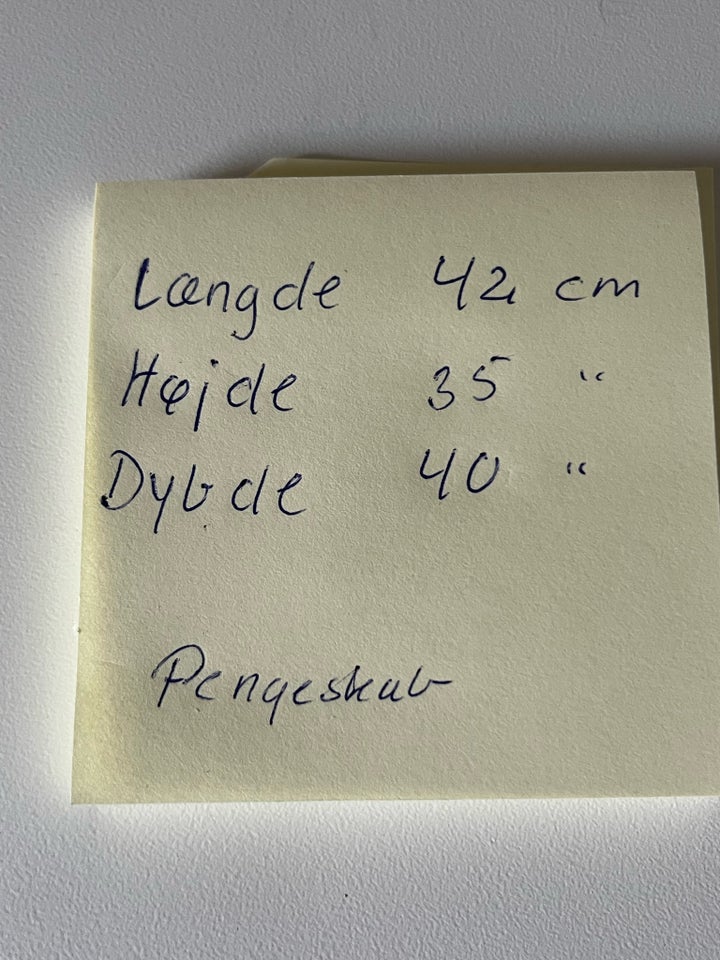 Længde 42 cm
Højde 35 "
Dybde 40 "
Pengeskab